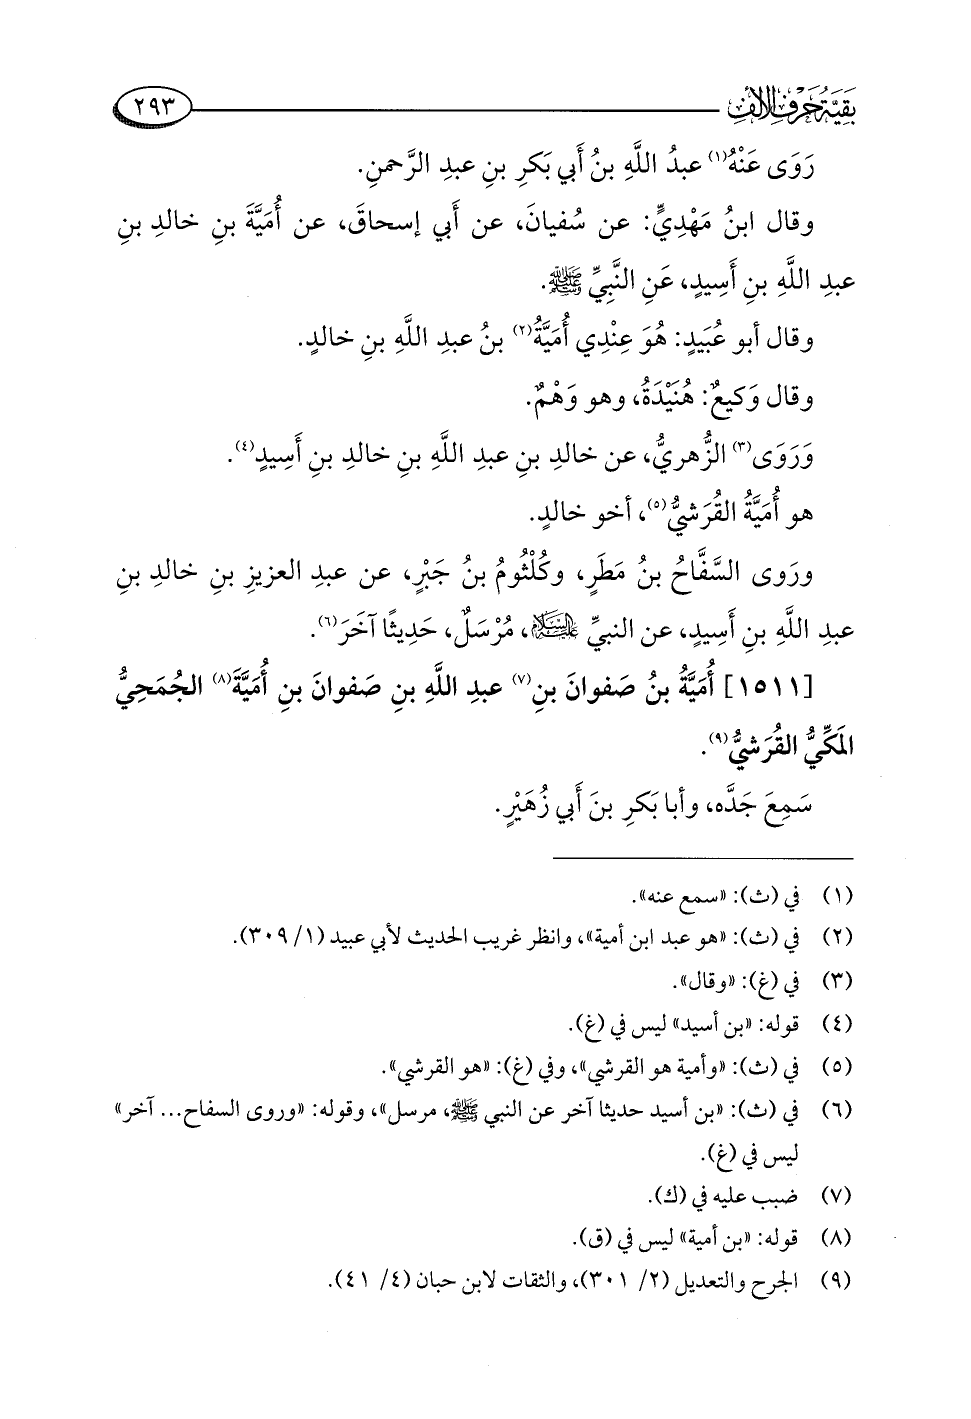 بَقِيَّة حَرْف الألِف ٢٩٣
رَوَى عَنْهُ(١) عبدُ اللَّهِ بنُ أَبي بَكرِ بنِ عبدِ الرَّحمنِ.
وقال ابنُ مَهْدِيٍّ: عن سُفيانَ، عن أَبي إسحاقَ، عن أُمَيَّةَ بنِ خالدِ بنِ
عبدِ اللَّهِ بنِ أَسِيدٍ، عَنِ النَّبِيِّ ﷺ.
وقال أبو عُبَيدٍ: هُوَ عِنْدِي أُمَيَّةُ(٢) بنُ عبدِ اللَّهِ بنِ خالدٍ.
وقال وَكيعٌ: هُنَيْدَةُ، وهو وَهْمٌ.
وَرَوَى(٣) الزُّهريُّ، عن خالدِ بنِ عبدِ اللَّهِ بنِ خالدِ بنِ أَسِيدٍ(٤).
هو أُمَيَّةُ القُرَشيُّ(٥)، أخو خالدٍ.
ورَوى السَّفَّاحُ بنُ مَطَرٍ، وكُلْثُومُ بنُ جَبْرٍ، عن عبدِ العزيزِ بنِ خالدِ بنِ
عبدِ اللَّهِ بنِ أَسِيدٍ، عن النبيِّ عليه السلام، مُرْسَلٌ، حَدِيثًا آخَرَ(٦).
[١٥١١] أُمَيَّةُ بنُ صَفوانَ بنِ(٧) عبدِ اللَّهِ بنِ صَفوانَ بنِ أُمَيَّةَ(٨) الجُمَحِيُّ
المَكِّيُّ القُرَشيُّ(٩).
سَمِعَ جَدَّه، وأبا بَكرِ بنَ أَبي زُهَيْرٍ.
(١) في (ث): «سمع عنه».
(٢) في (ث): «هو عبد ابن أمية»، وانظر غريب الحديث لأبي عبيد (١/ ٣٠٩).
(٣) في (غ): «وقال».
(٤) قوله: «بن أسيد» ليس في (غ).
(٥) في (ث): «وأمية هو القرشي»، وفي (غ): «هو القرشي».
(٦) في (ث): «بن أسيد حديثا آخر عن النبي ﷺ، مرسل»، وقوله: «وروى السفاح... آخر»
ليس في (غ).
(٧) ضبب عليه في (ك).
(٨) قوله: «بن أمية» ليس في (ق).
(٩) الجرح والتعديل (٢/ ٣٠١)، والثقات لابن حبان (٤/ ٤١).